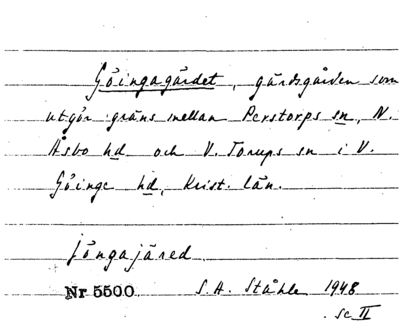 Göingagärdet, gärdsgården som
utgör gräns mellan Perstorps sn, N.
Åsbo hd och V. Torups sn i V.
Göinge hd, Krist. län.
jöngajäred
Nr 5500 S. A. Ståhle 1948
sc II